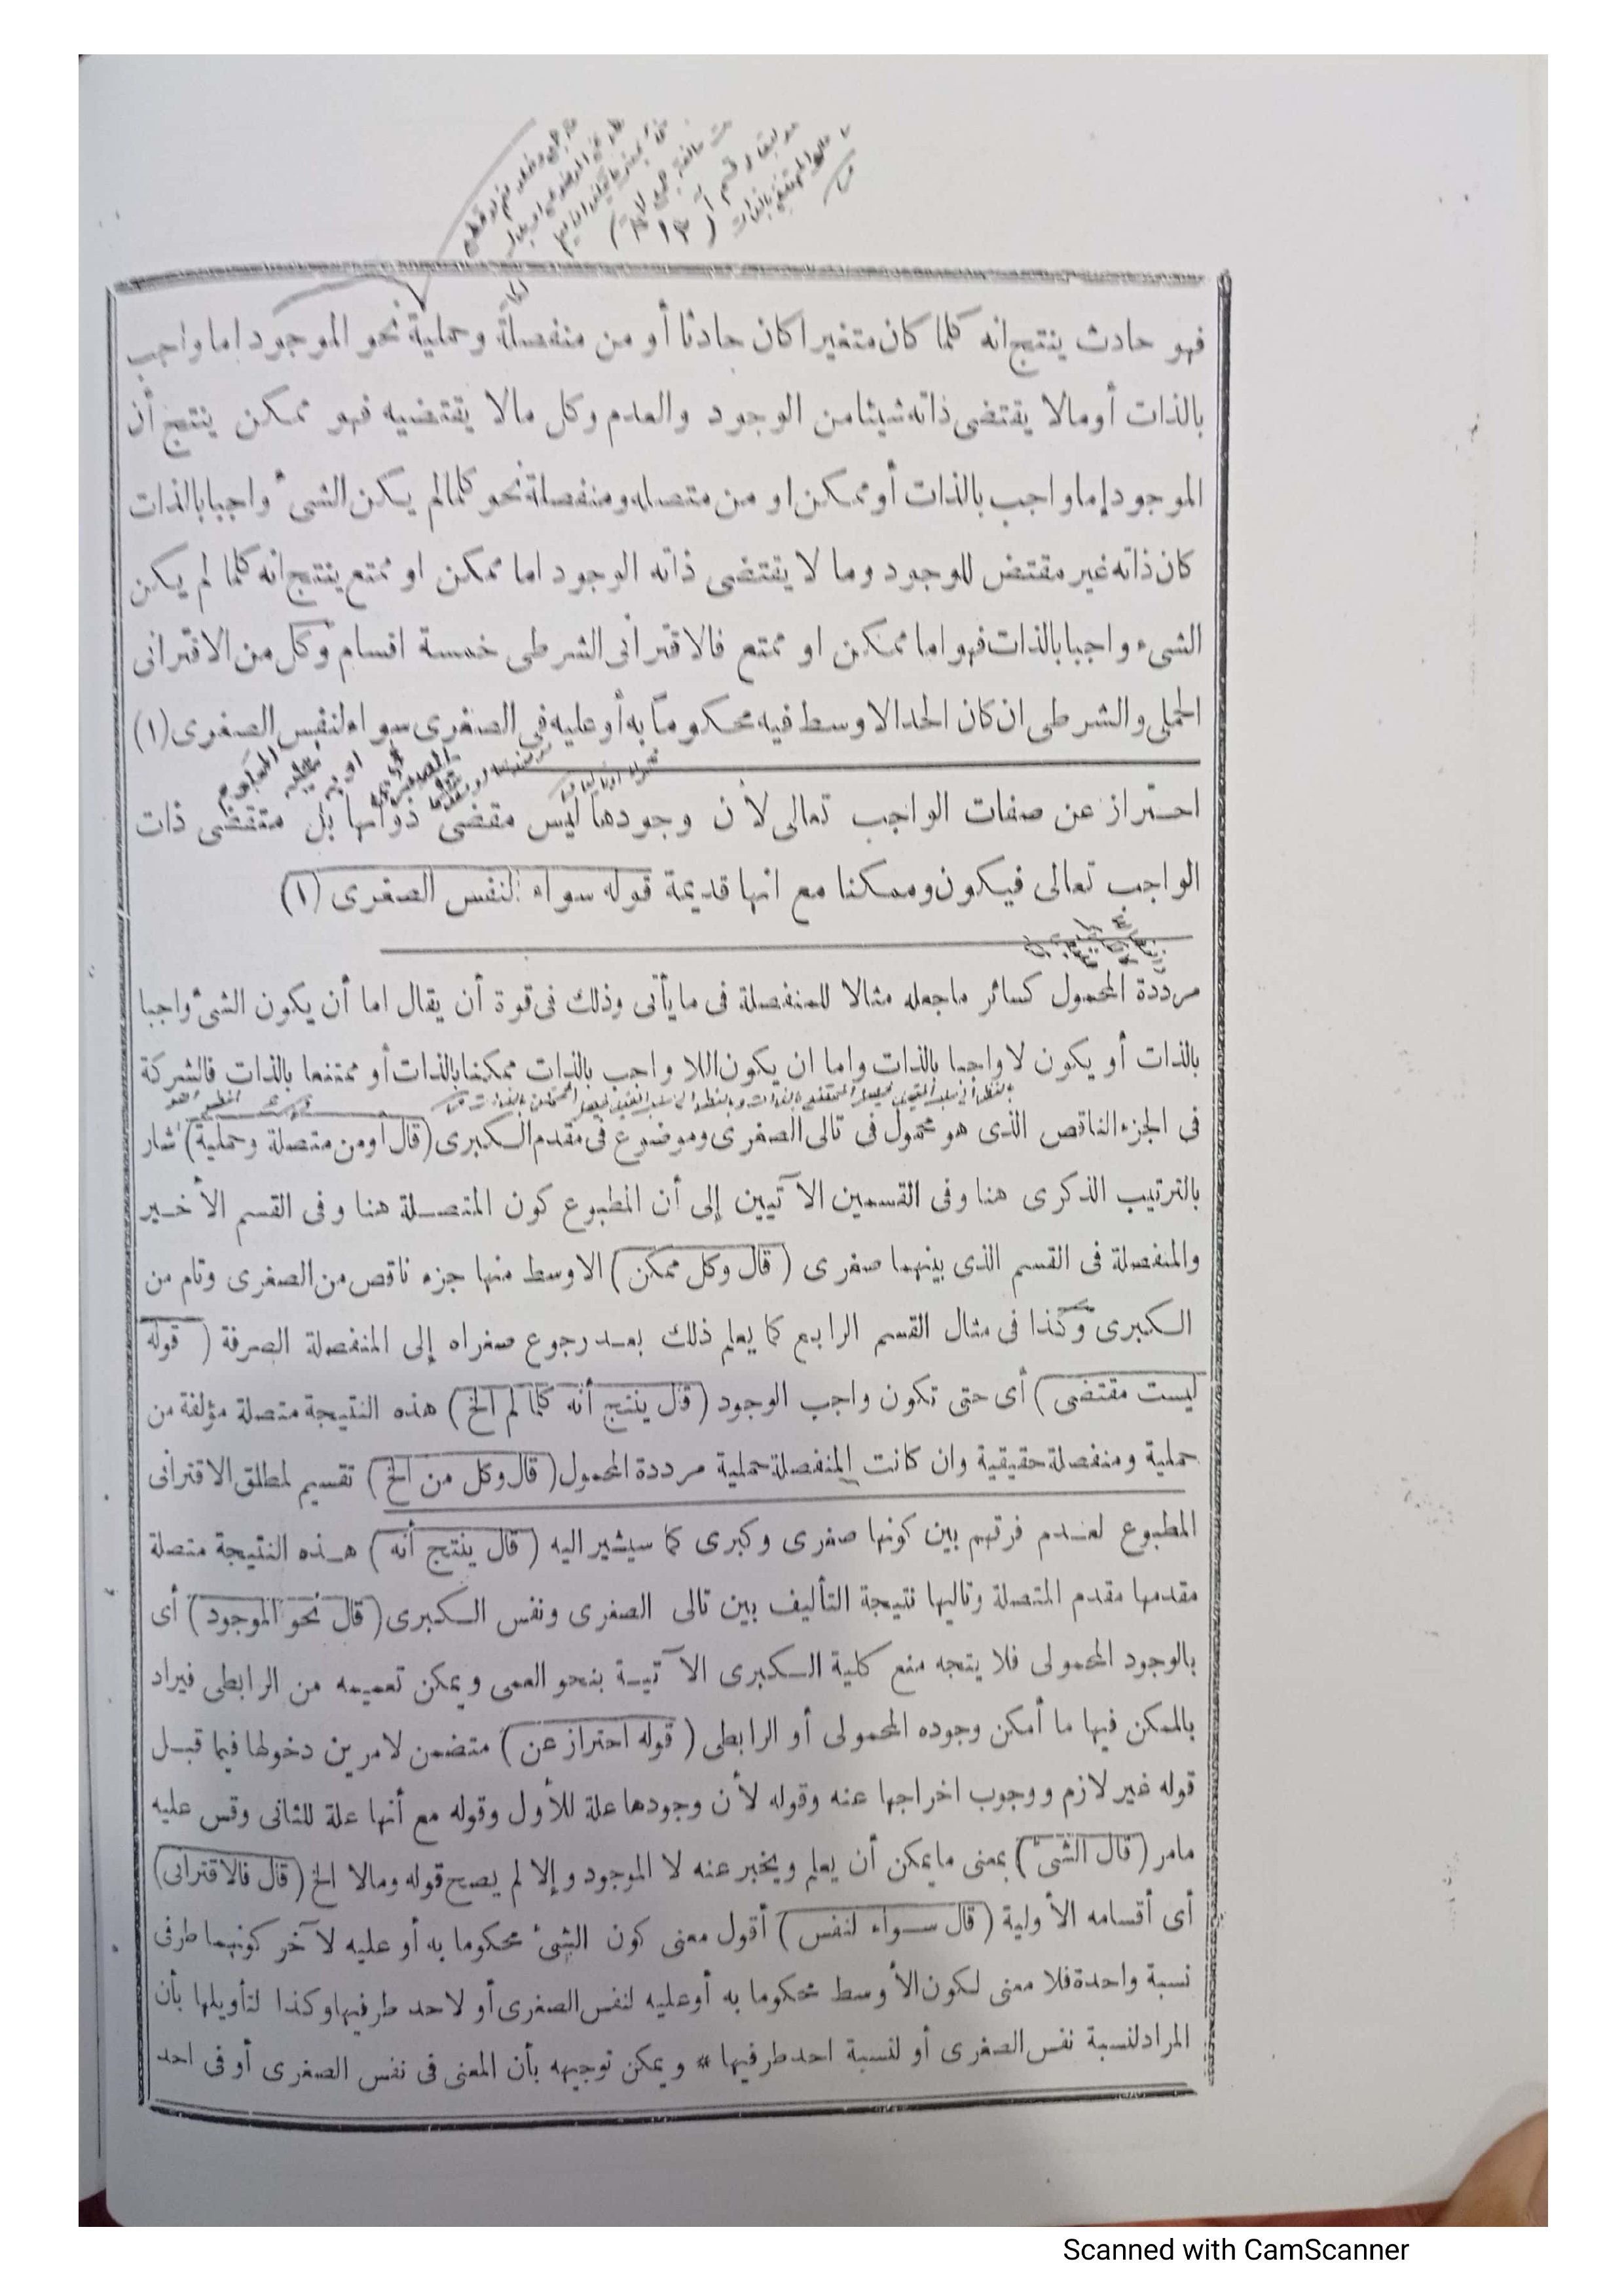 (٣١٢)
فهو حادث ينتج انه كلما كان متغيرا كان حادثا أو من منفصلة وحملية نحو الموجود اما واجب
بالذات أو مالا يقتضى ذاته شيئا من الوجود والعدم وكل مالا يقتضيه فهو ممكن ينتج أن
الموجود إما واجب بالذات أو ممكن او من متصله ومنفصلة نحو كلما لم يكن الشىء واجبا بالذات
كان ذاته غير مقتض للوجود وما لا يقتضى ذاته الوجود اما ممكن او ممتع ينتج انه كلما لم يكن
الشىء واجبا بالذات فهو اما ممكن او ممتع فالاقترانى الشرطى خمسة اقسام وكل من الاقترانى
الحملى والشرطى ان كان الحد الاوسط فيه محكوما به أو عليه فى الصغرى سواء لنفس الصغرى (١)
احتراز عن صفات الواجب تعالى لأن وجودها ليس مقضى ذواتها بل متقضى ذات
الواجب تعالى فيكون وممكنا مع انها قديمة قوله سواء لنفس الصغرى (١)
مرددة المحمول كسائر ماجعله مثالا للمنفصلة فى ما يأتى وذلك فى قوة أن يقال اما أن يكون الشئ واجبا
بالذات أو يكون لا واجبا بالذات واما ان يكون اللا واجب بالذات ممكنا بالذات أو ممتنعا بالذات فالشركة
فى الجزء الناقص الذى هو محمول فى تالى الصغرى وموضوع فى مقدم الكبرى (قال أو من متصلة وحملية) شار
بالترتيب الذكرى هنا وفى القسمين الآتيين إلى أن المطبوع كون المتصلة هنا وفى القسم الأخير
والمنفصلة فى القسم الذى بينهما صغرى (قال وكل ممكن) الاوسط منها جزء ناقص من الصغرى وتام من
الكبرى وكذا فى مثال القسم الرابع كما يعلم ذلك بعد رجوع صغراه إلى المنفصلة الصرفة (قوله
ليست مقتضى) أى حتى تكون واجب الوجود (قال ينتج أنه كلما لم الخ) هذه النتيجة متصلة مؤلفة من
حملية ومنفصلة حقيقية وان كانت المنفصلة حملية مرددة المحمول (قال وكل من الخ) تقسيم لمطلق الاقترانى
المطبوع لعدم فرتهم بين كونها صغرى وكبرى كما سيشير اليه (قال ينتج أنه) هذه النتيجة متصلة
مقدمها مقدم المتصلة وتاليها نتيجة التأليف بين تالى الصغرى ونفس الكبرى (قال نحو الموجود) أى
بالوجود المحمولى فلا يتجه منع كلية الكبرى الآتية بنحو العمى ويمكن تعميمه من الرابطى فيراد
بالممكن فيها ما أمكن وجوده المحمولى أو الرابطى (قوله احتراز عن) متضمن لامرين دخولها فيما قبل
قوله غير لازم ووجوب اخراجها عنه وقوله لأن وجودها علة للأول وقوله مع أنها علة للثانى وقس عليه
مامر (قال الشئ) بمعنى مايمكن أن يعلم ويخبر عنه لا الموجود وإلا لم يصح قوله ومالا الخ (قال فالاقترانى)
أى أقسامه الأولية (قال سواء لنفس) أقول معنى كون الشئ محكوما به أو عليه لآخر كونهما طرفى
نسبة واحدة فلا معنى لكون الأوسط محكوما به أو عليه لنفس الصغرى أو لاحد طرفيها وكذا لتأويلها بأن
المراد لنسبة نفس الصغرى أو لنسبة احد طرفيها * ويمكن توجيهه بأن المعنى فى نفس الصغرى أو فى احد
Scanned with CamScanner